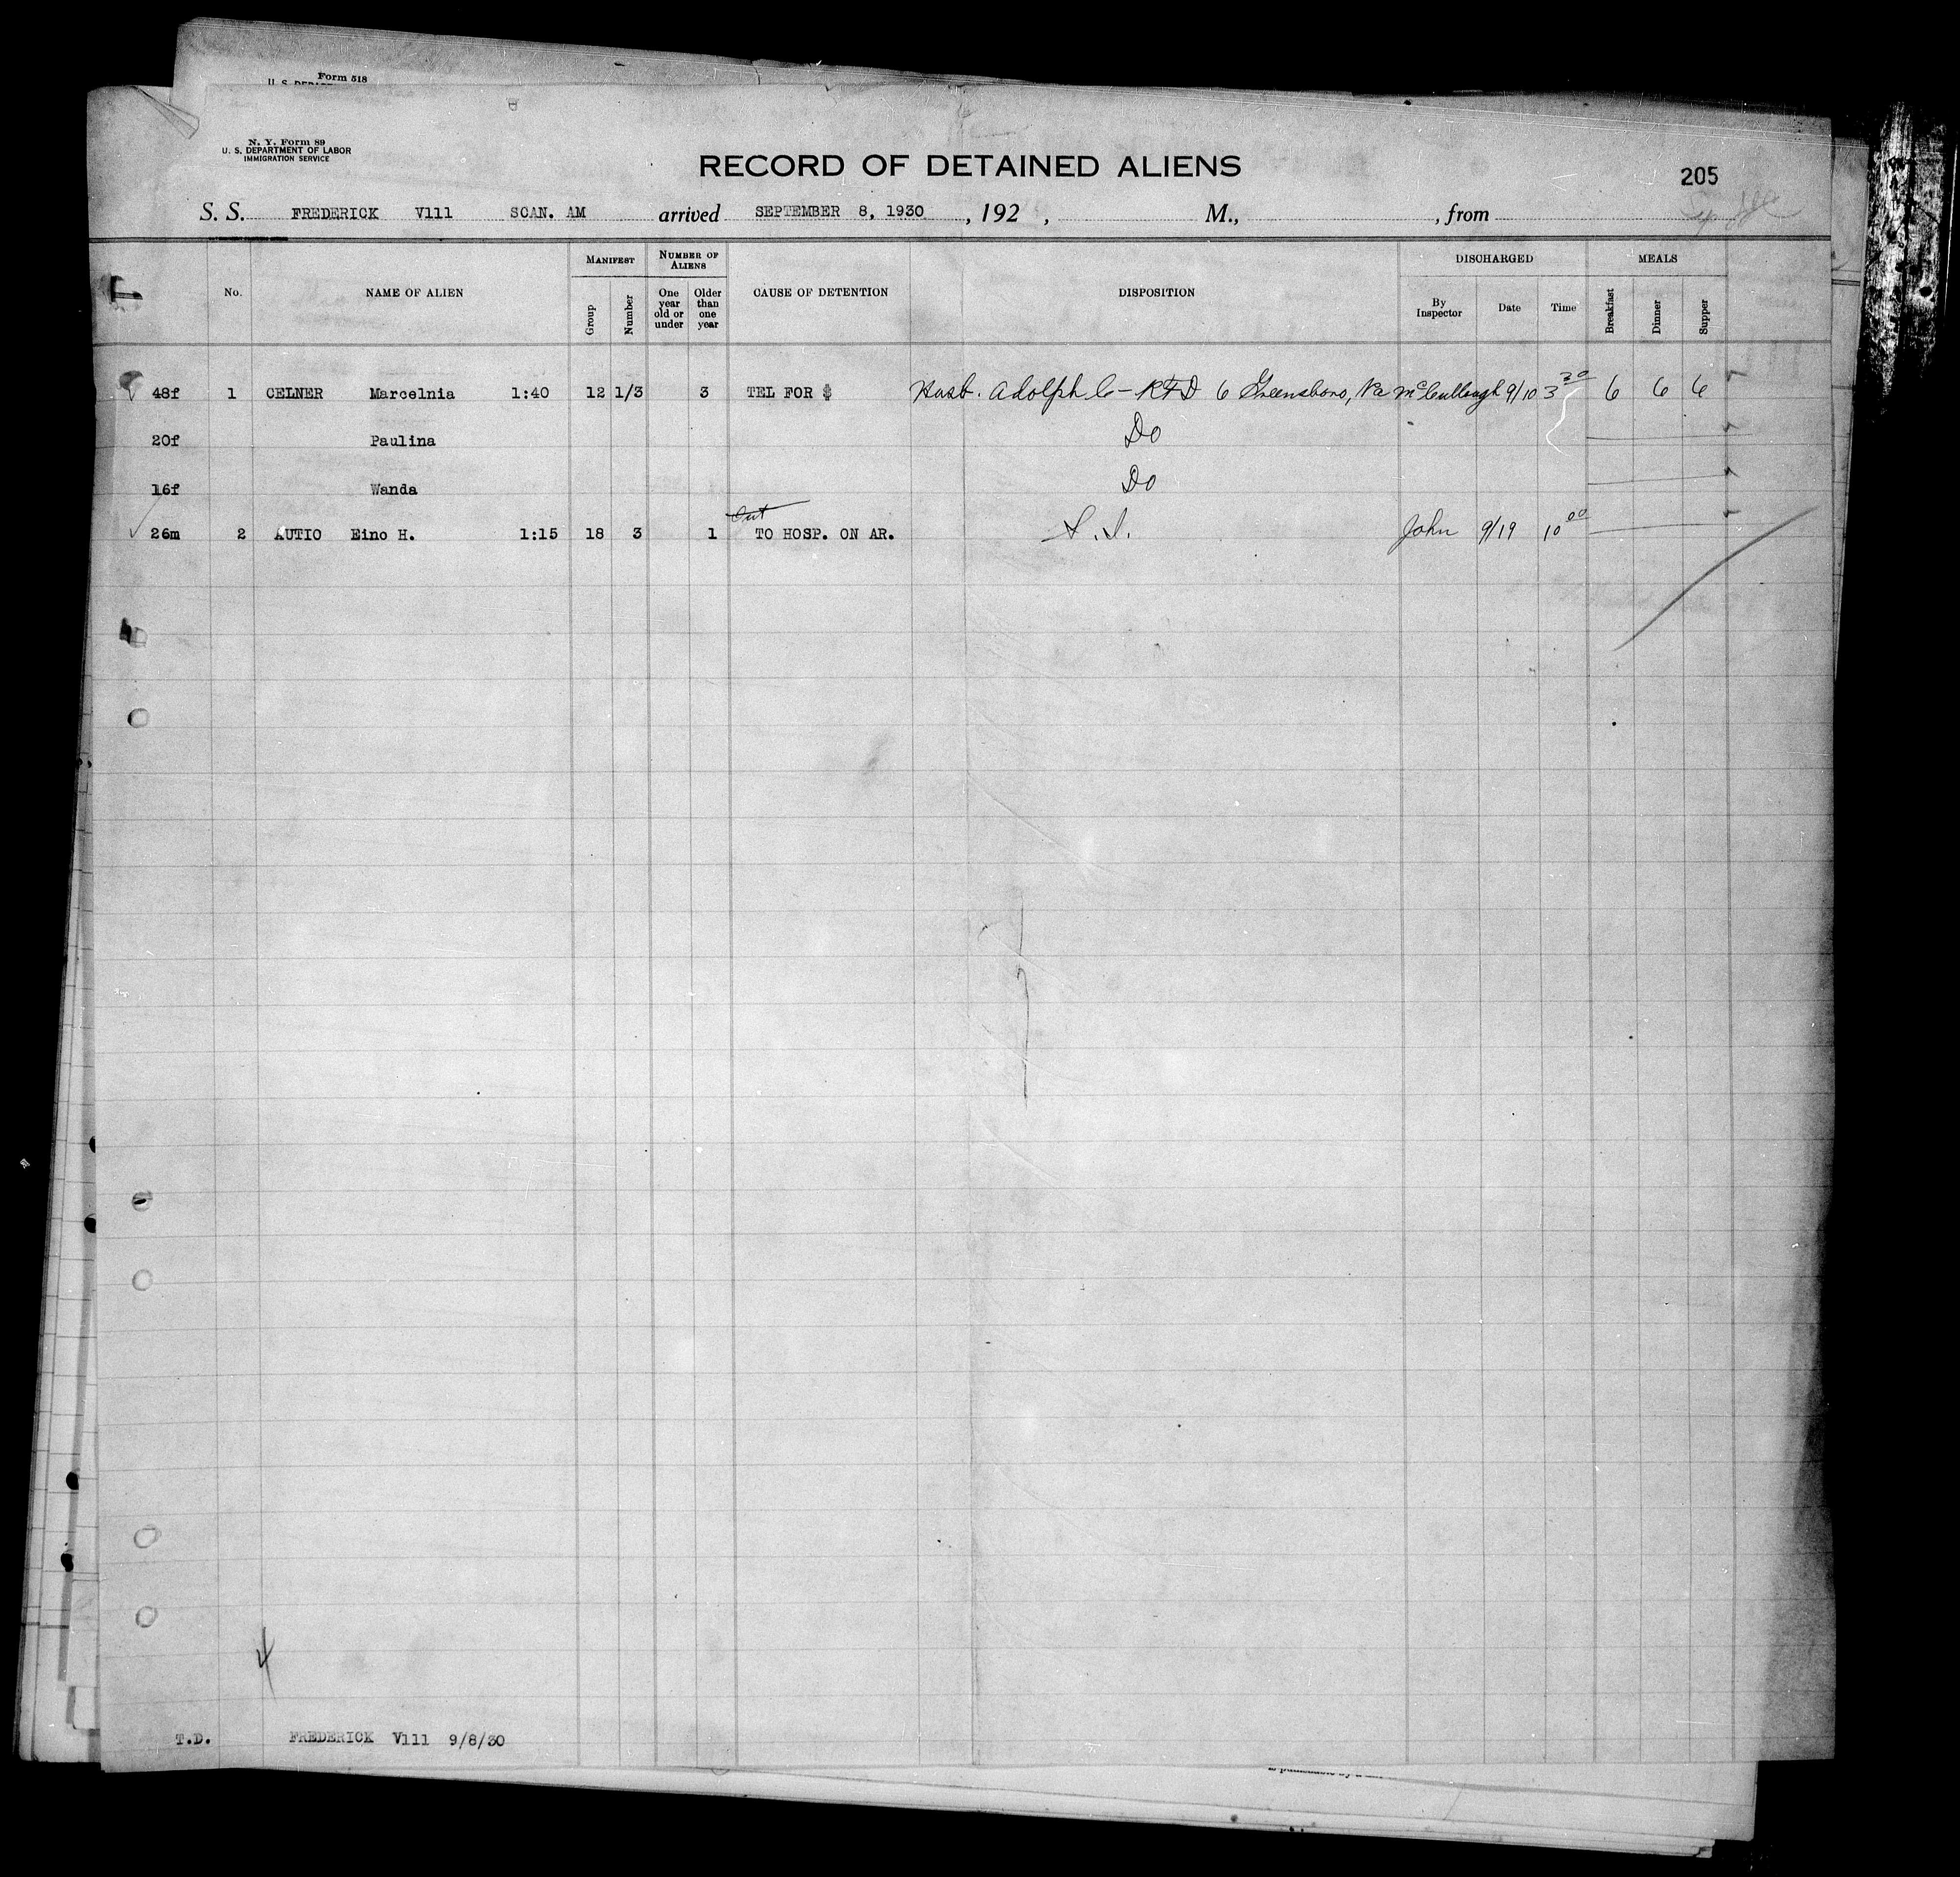 Form 518
N. Y. Form 89
U. S. DEPARTMENT OF LABOR
IMMIGRATION SERVICE
RECORD OF DETAINED ALIENS
205
S. S. FREDERICK V111 SCAN. AM arrived SEPTEMBER 8, 1930, 192 , M., , from
No. NAME OF ALIEN MANIFEST Group Number NUMBER OF ALIENS One year old or under Older than one year CAUSE OF DETENTION DISPOSITION DISCHARGED By Inspector Date Time MEALS Breakfast Dinner Supper
48f 1 CELNER Marcelnia 1:40 12 1/3 3 TEL FOR $ Husb. Adolph C - RFD 6 Greensboro, Pa McCullough 9/10 3 30 6 6 6
20f Paulina Do
16f Wanda Do
Out
26m 2 AUTIO Eino H. 1:15 18 3 1 TO HOSP. ON AR. S.I. John 9/19 10 00
4
T.D. FREDERICK V111 9/8/30